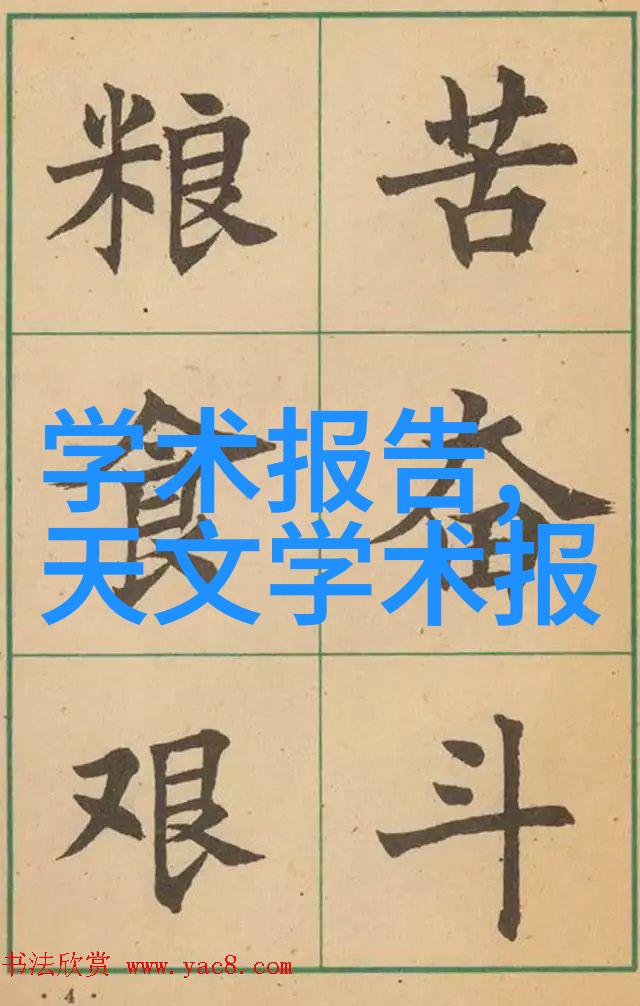 苦 粮
奋 食
斗 艰
学术报告,
天文学术报
书法欣赏 www.yac8.com
· 4 ·